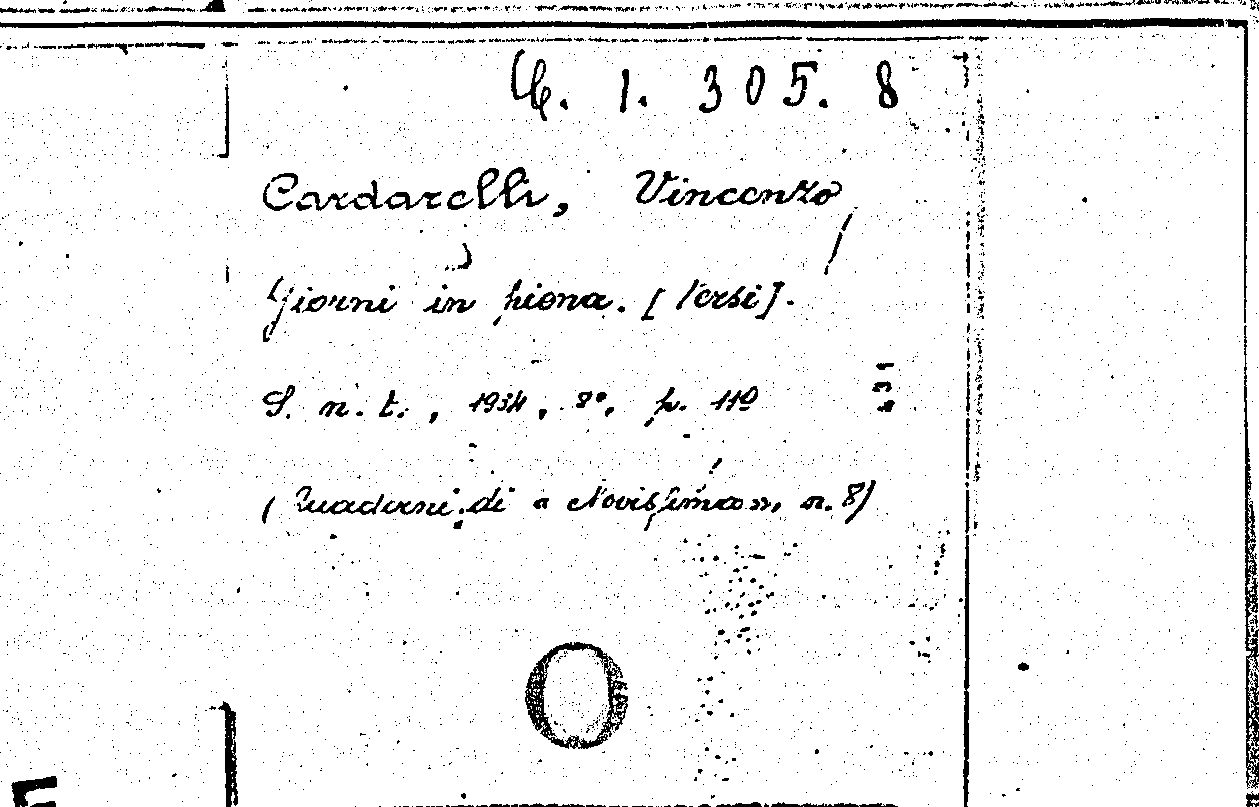 1. 305. 8
Cardarelli, Vincenzo
Giorni in piena. [Versi].
S. n. t., 1934, 8°, p. 119
(Quaderni di « Novissima », n. 8)